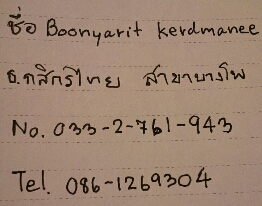 ชื่อ Boonyarit kerdmanee
ธ.กสิกรไทย สาขาบางโพ
No. 033-2-761-943
Tel. 086-1269304